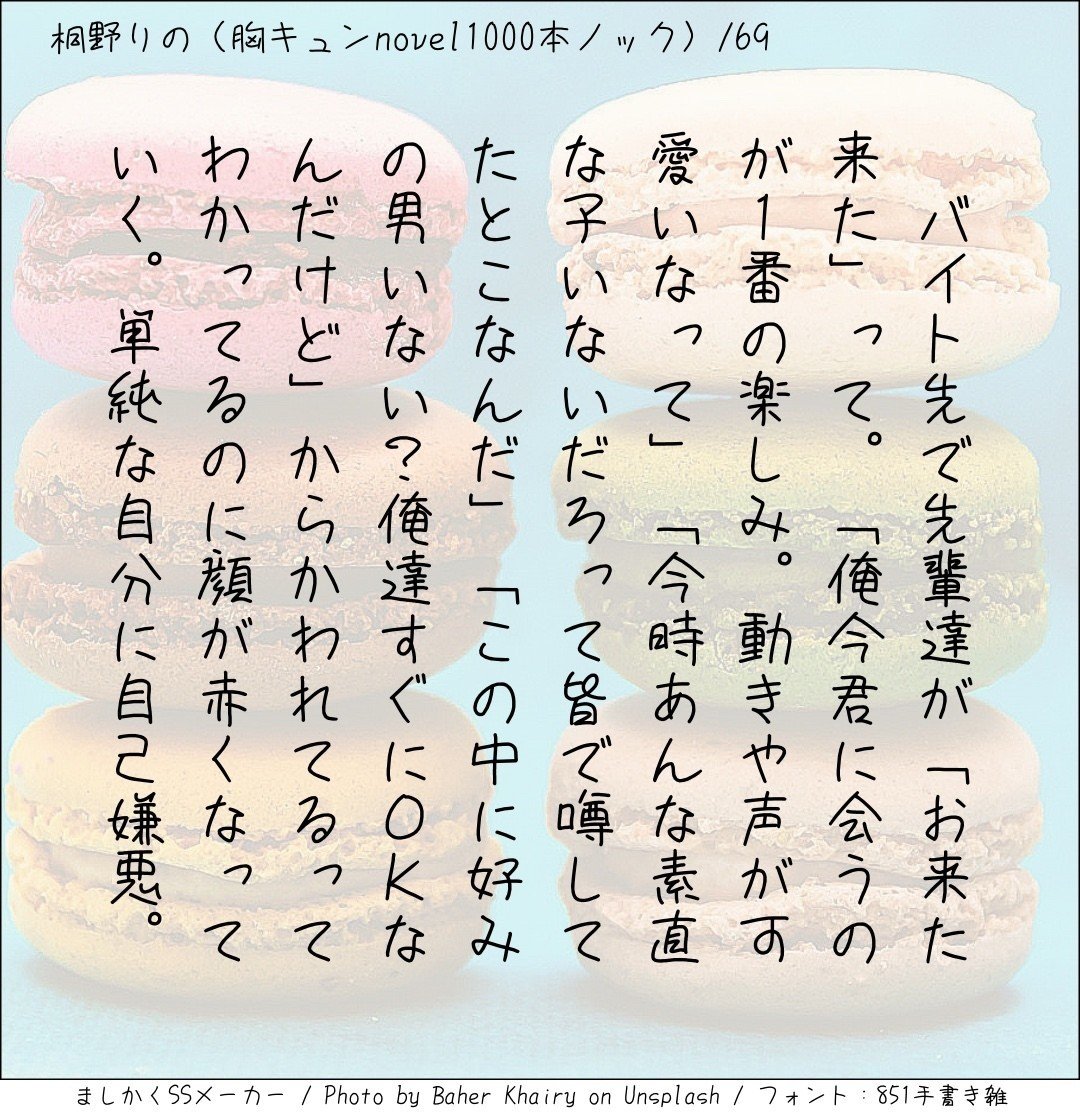 桐野りの（胸キュンnovel1000本ノック）/69
バイト先で先輩達が「お来た
来た」って。「俺今君に会うの
が１番の楽しみ。動きや声がす
愛いなって」「今時あんな素直
な子いないだろって皆で噂して
たとこなんだ」「この中に好み
の男いない？俺達すぐにＯＫな
んだけど」からかわれてるって
わかってるのに顔が赤くなって
いく。単純な自分に自己嫌悪。
ましかくSSメーカー / Photo by Baher Khairy on Unsplash / フォント：851手書き雑